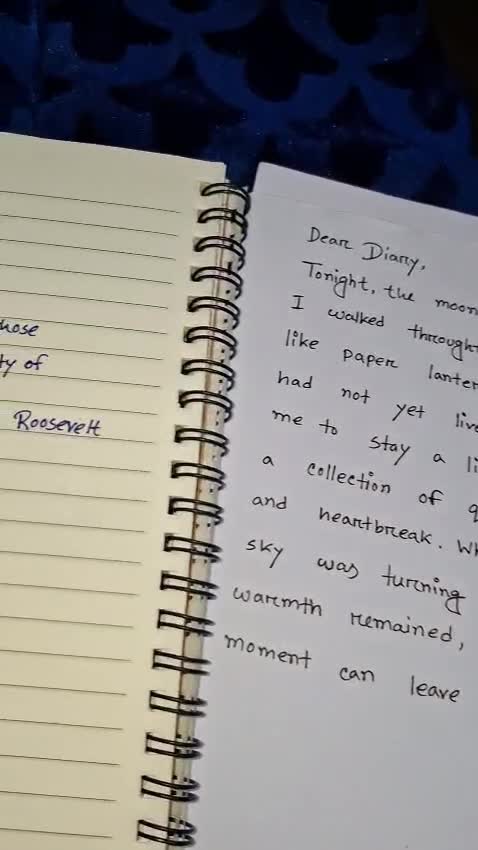 ty of
Roosevelt
Dear Diary,
Tonight, the moon
I walked through
like paper lanter
had not yet live
me to stay a li
a collection of q
and heartbreak. Wh
sky was turning
warmth remained,
moment can leave